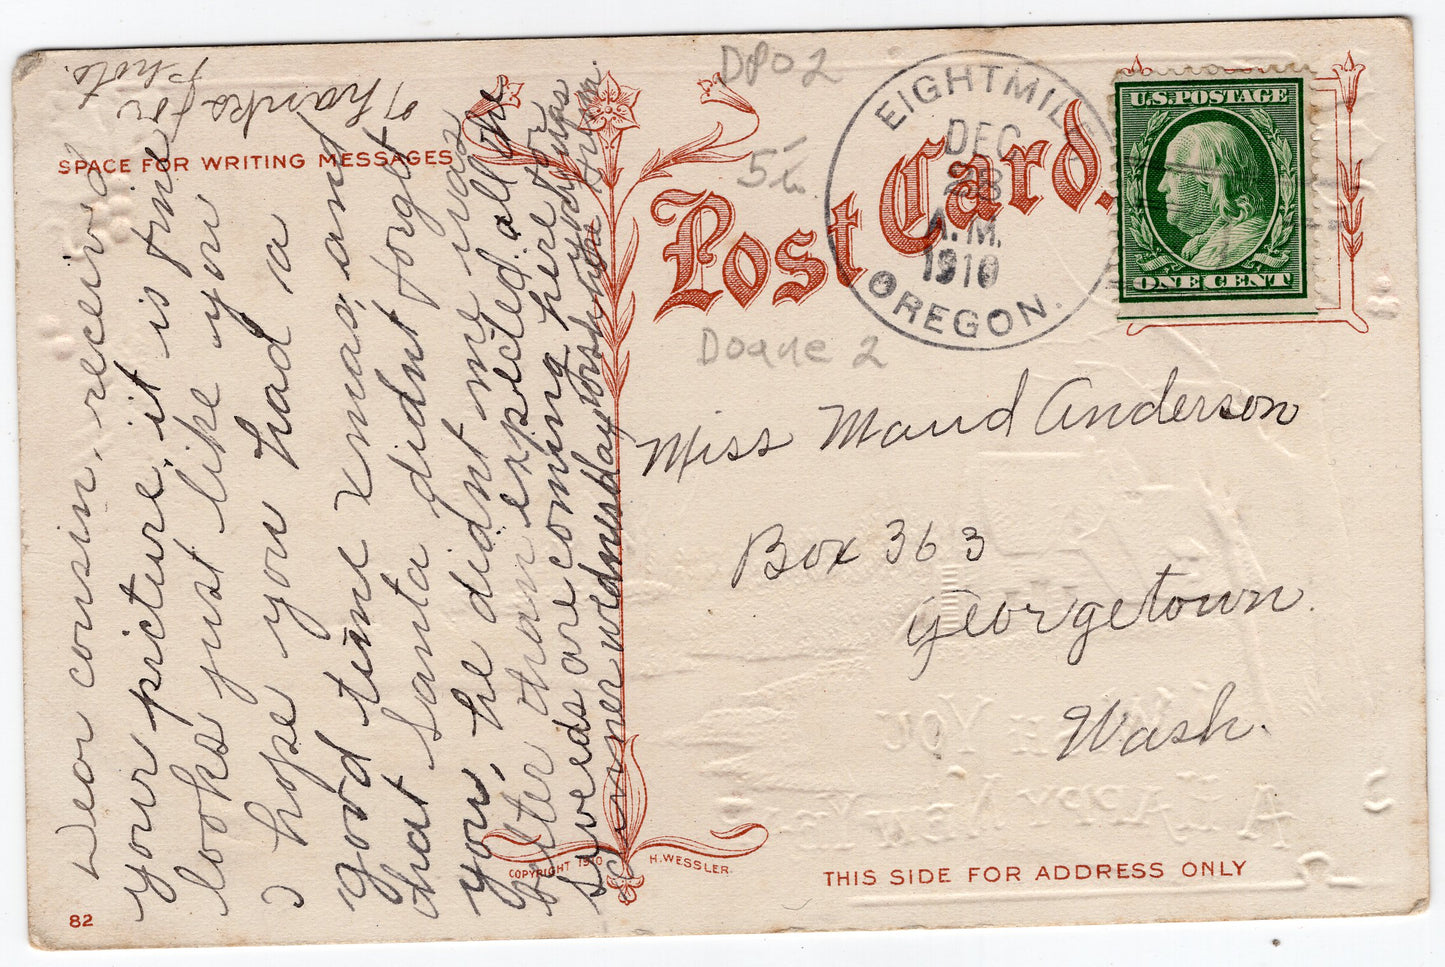 SPACE FOR WRITING MESSAGES
Post Card.
DPO 2
5
Doane 2
EIGHTMILE
DEC
28
A.M.
1910
OREGON.
U.S. POSTAGE
ONE CENT
Miss Maud Anderson
Box 363
Georgetown.
Wash.
Dear cousin, received
your picture, it is fine
looks just like you
I hope you had a
good time xmas, and
that Santa didnt forget
you, he didnt me I was
better than expected. all the
are coming here for
dinner wednesday
Thanks for
Photo.
COPYRIGHT 1910
H. WESSLER.
THIS SIDE FOR ADDRESS ONLY
82
WISH YOU
A HAPPY NEW YEAR